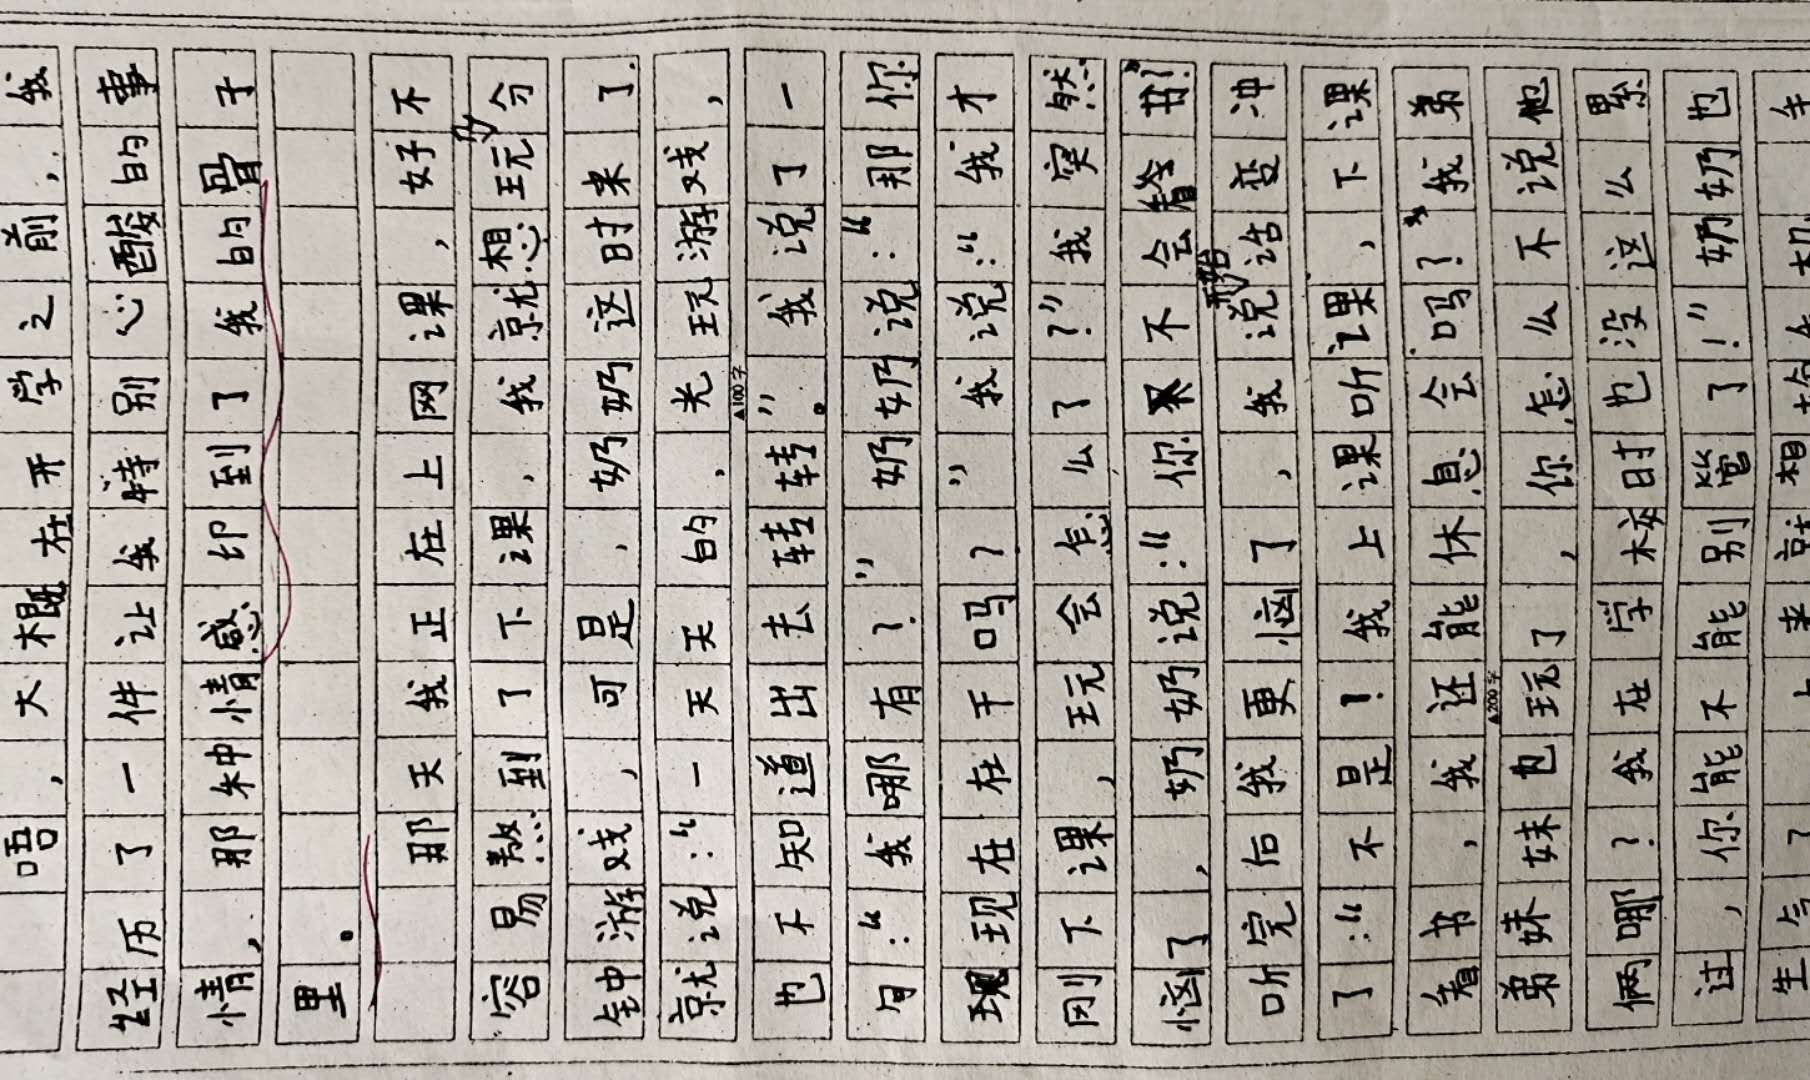 唔，大概在开学之前，我
经历了一件让我特别心酸的事
情，那种情感印到了我的骨子
里。
那天我正在上网课，好不
容易熬到了下课，我就想玩几分
钟游戏，可是，奶奶这时来了.
就说：“一天天的，光玩游戏，
▲100字
也不知道出去转转”。我说了一
句：“我哪有？”奶奶说：“那你
现在在干吗？”我说：“我才
刚下课，玩会怎么了？”我突然
恼了，奶奶说：“你不会看书？”
听完后我更恼了，我开始说话变冲
了：“不是！我上课听课，下课
看书，我还能休息会吗？”我弟
▲200字
弟妹妹也玩了，你怎么不说他
俩哪？我在学校时也没这么累
过，你能不能别管了！”奶奶也
生气了